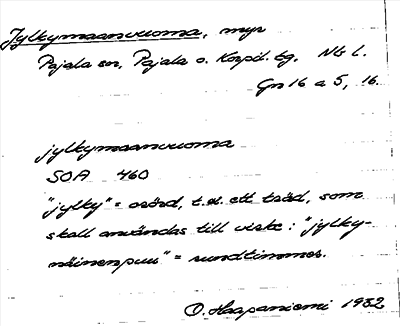 Jylkymaanvuoma, myr
Pajala sn, Pajala o. Korpil. tg. Nb l.
Gn 16 a 5, 16.
jylkymaanvuoma
SOA 460
"jylky" = oxöxd, t.ex. ett träd, som
skall användas till virke: "jylky-
näinenpuu" = rundtimmer.
O. Haapaniemi 1932